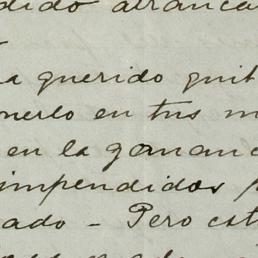 dido arranca
a querido quit
onerlo en tus m
en la gananc
impendidos p
ado - Pero est